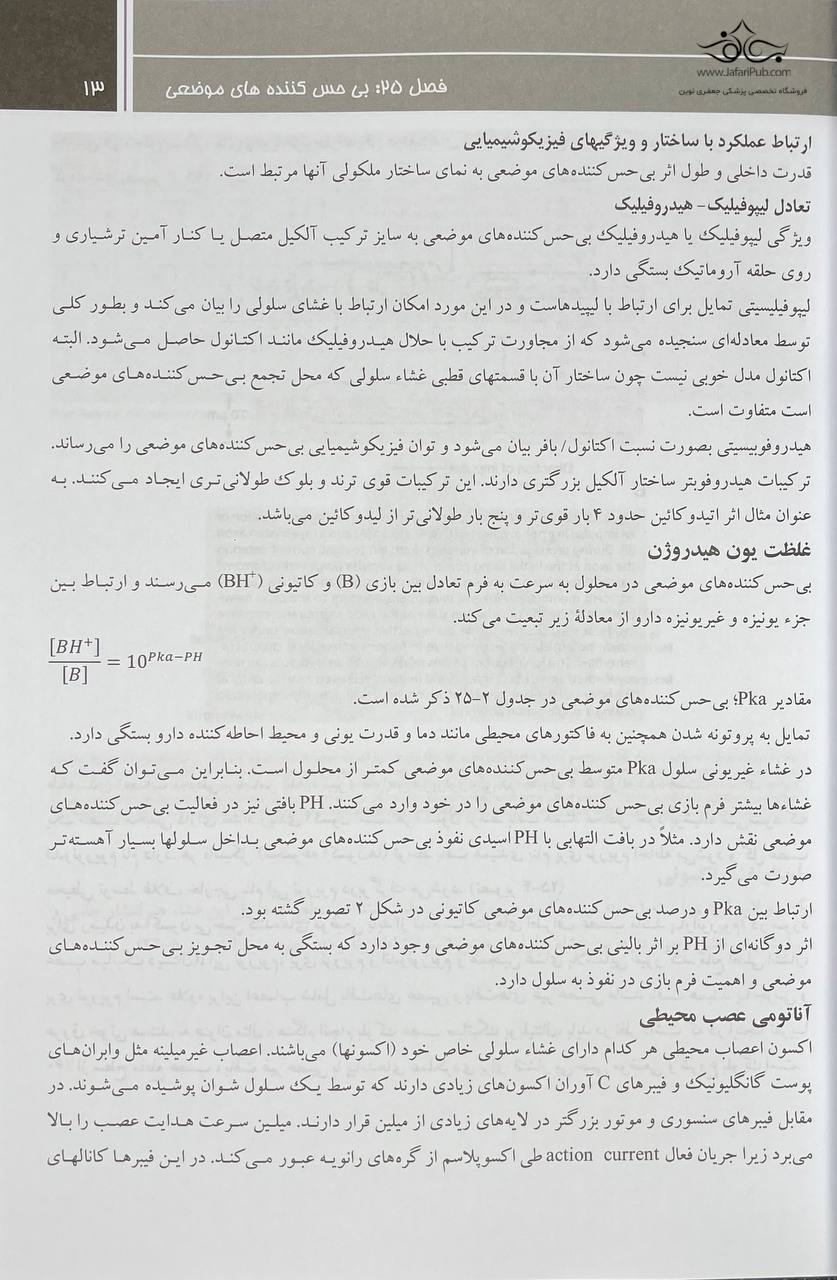 www.JafariPub.com
فروشگاه تخصصی پزشکی جعفری نوین
فصل ۲۵: بی حس کننده های موضعی
۱۳
ارتباط عملکرد با ساختار و ویژگیهای فیزیکوشیمیایی
قدرت داخلی و طول اثر بی‌حس‌کننده‌های موضعی به نمای ساختار ملکولی آنها مرتبط است.
تعادل لیپوفیلیک- هیدروفیلیک
ویژگی لیپوفیلیک یا هیدروفیلیک بی‌حس‌کننده‌های موضعی به سایز ترکیب آلکیل متصل یا کنار آمین ترشیاری و
روی حلقه آروماتیک بستگی دارد.
لیپوفیلیسیتی تمایل برای ارتباط با لیپیدهاست و در این مورد امکان ارتباط با غشای سلولی را بیان می‌کند و بطور کلی
توسط معادله‌ای سنجیده می‌شود که از مجاورت ترکیب با حلال هیدروفیلیک مانند اکتانول حاصل می‌شود. البته
اکتانول مدل خوبی نیست چون ساختار آن با قسمتهای قطبی غشاء سلولی که محل تجمع بی‌حس‌کننده‌های موضعی
است متفاوت است.
هیدروفوبیسیتی بصورت نسبت اکتانول/ بافر بیان می‌شود و توان فیزیکوشیمیایی بی‌حس‌کننده‌های موضعی را می‌رساند.
ترکیبات هیدروفوبتر ساختار آلکیل بزرگتری دارند. این ترکیبات قوی ترند و بلوک طولانی‌تری ایجاد می‌کنند. به
عنوان مثال اثر اتیدوکائین حدود ۴ بار قوی‌تر و پنج بار طولانی‌تر از لیدوکائین می‌باشد.
غلظت یون هیدروژن
بی‌حس‌کننده‌های موضعی در محلول به سرعت به فرم تعادل بین بازی (B) و کاتیونی (BH⁺) می‌رسند و ارتباط بین
جزء یونیزه و غیریونیزه دارو از معادلهٔ زیر تبعیت می‌کند.
[BH⁺]/[B] = 10^(Pka−PH)
مقادیر Pka؛ بی‌حس‌کننده‌های موضعی در جدول ۲-۲۵ ذکر شده است.
تمایل به پروتونه شدن همچنین به فاکتورهای محیطی مانند دما و قدرت یونی و محیط احاطه‌کننده دارو بستگی دارد.
در غشاء غیریونی سلول Pka متوسط بی‌حس‌کننده‌های موضعی کمتر از محلول است. بنابراین می‌توان گفت که
غشاءها بیشتر فرم بازی بی‌حس کننده‌های موضعی را در خود وارد می‌کنند. PH بافتی نیز در فعالیت بی‌حس‌کننده‌های
موضعی نقش دارد. مثلاً در بافت التهابی با PH اسیدی نفوذ بی‌حس‌کننده‌های موضعی بداخل سلولها بسیار آهسته‌تر
صورت می‌گیرد.
ارتباط بین Pka و درصد بی‌حس‌کننده‌های موضعی کاتیونی در شکل ۲ تصویر گشته بود.
اثر دوگانه‌ای از PH بر اثر بالینی بی‌حس‌کننده‌های موضعی وجود دارد که بستگی به محل تجویز بی‌حس‌کننده‌های
موضعی و اهمیت فرم بازی در نفوذ به سلول دارد.
آناتومی عصب محیطی
اکسون اعصاب محیطی هر کدام دارای غشاء سلولی خاص خود (اکسونها) می‌باشند. اعصاب غیرمیلینه مثل وابران‌های
پوست گانگلیونیک و فیبرهای C آوران اکسون‌های زیادی دارند که توسط یک سلول شوان پوشیده می‌شوند. در
مقابل فیبرهای سنسوری و موتور بزرگتر در لایه‌های زیادی از میلین قرار دارند. میلین سرعت هدایت عصب را بالا
می‌برد زیرا جریان فعال action current طی اکسوپلاسم از گره‌های رانویه عبور می‌کند. در این فیبرها کانالهای